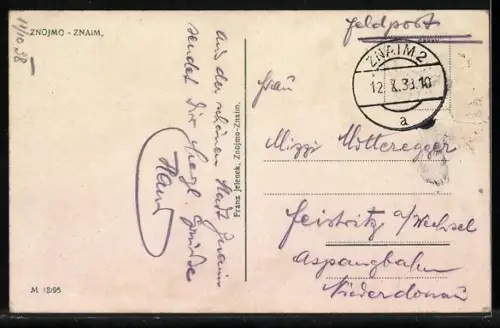 11/10 38
ZNOJMO - ZNAIM.
Feldpost
ZNAIM 2
12. X. 38. 10
a
Aus der schönen Stadt Znaim
sendet Dir herzl. Grüsse
Hans
Franz Jelenek, Znojmo-Znaim.
Frau
Mizzi Motteregger
Feistritz a/Wechsel
Aspangbahn
Niederdonau
M 18195